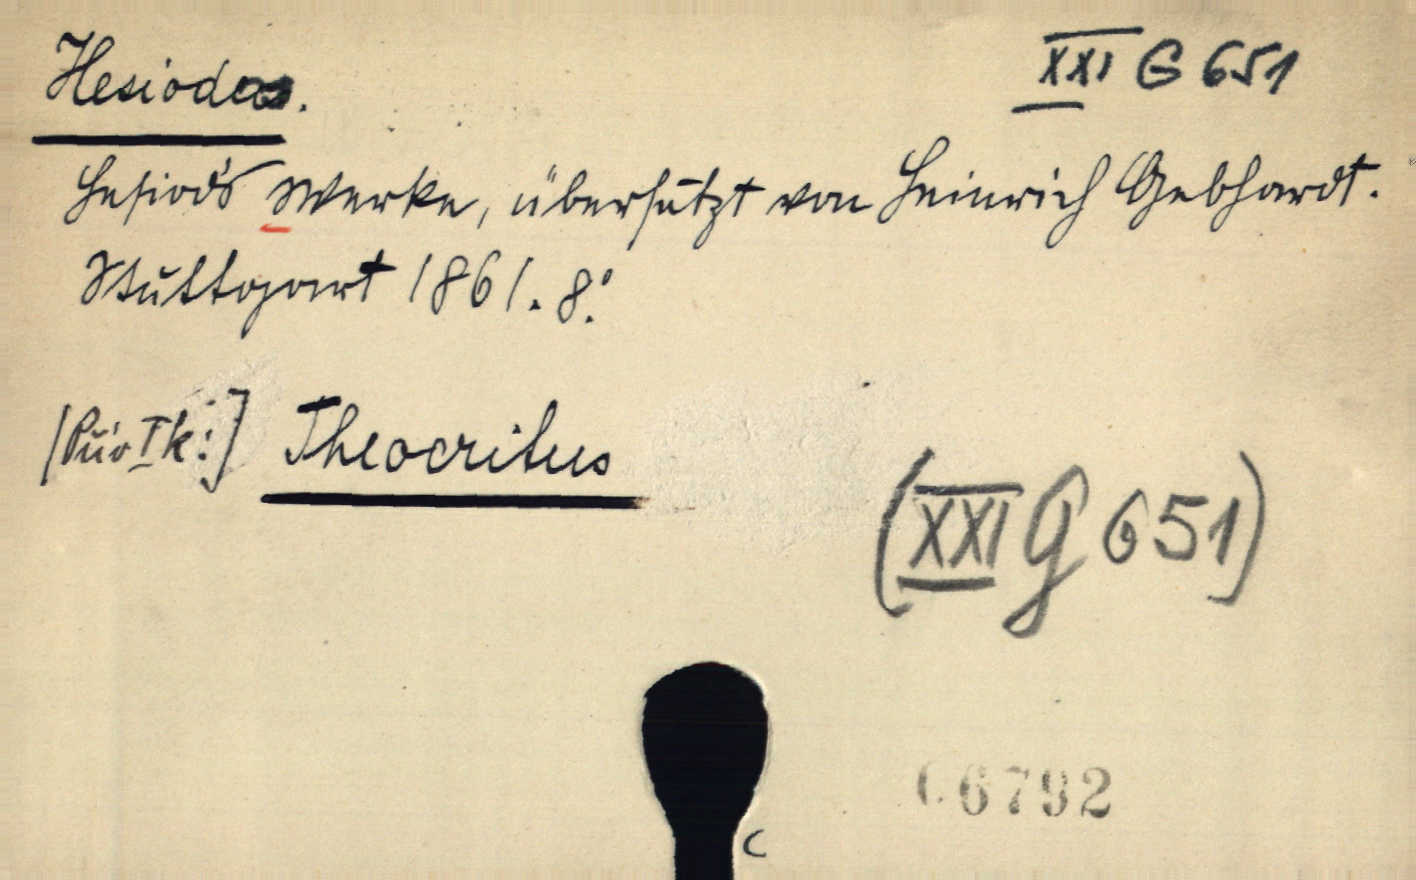 Hesiodos.
XXI G 651
Hesiod's Werke, übersetzt von Heinrich Gebhardt.
Stuttgart 1861. 8°.
Theocritus
(XXI G 651)
C 6792
C